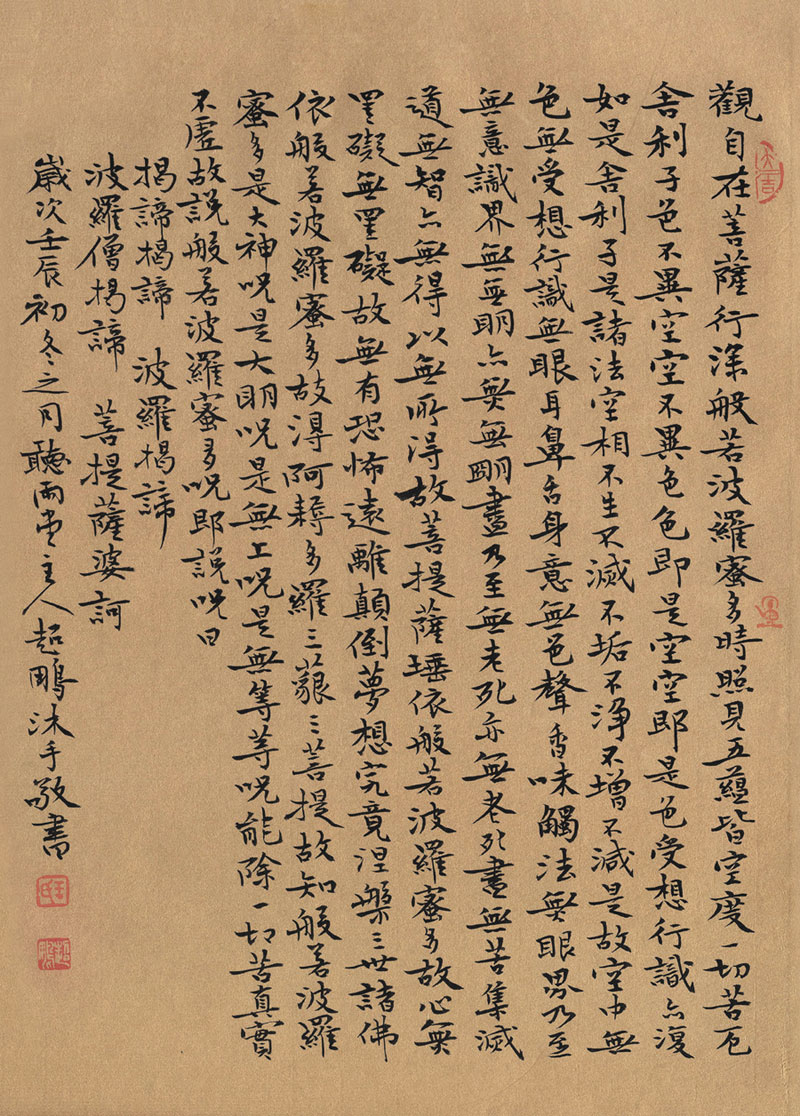 觀自在菩薩行深般若波羅蜜多時照見五蘊皆空度一切苦厄
舍利子色不異空空不異色色即是空空即是色受想行識亦復
如是舍利子是諸法空相不生不滅不垢不淨不增不減是故空中無
色無受想行識無眼耳鼻舌身意無色聲香味觸法無眼界乃至
無意識界無無明亦無無明盡乃至無老死亦無老死盡無苦集滅
道無智亦無得以無所得故菩提薩埵依般若波羅蜜多故心無
罣礙無罣礙故無有恐怖遠離顛倒夢想究竟涅槃三世諸佛
依般若波羅蜜多故得阿耨多羅三藐三菩提故知般若波羅
蜜多是大神咒是大明咒是無上咒是無等等咒能除一切苦真實
不虛故說般若波羅蜜多咒即說咒曰
揭諦揭諦 波羅揭諦
波羅僧揭諦 菩提薩婆訶
歲次壬辰初冬之月聽雨堂主人超鵬沐手敬書